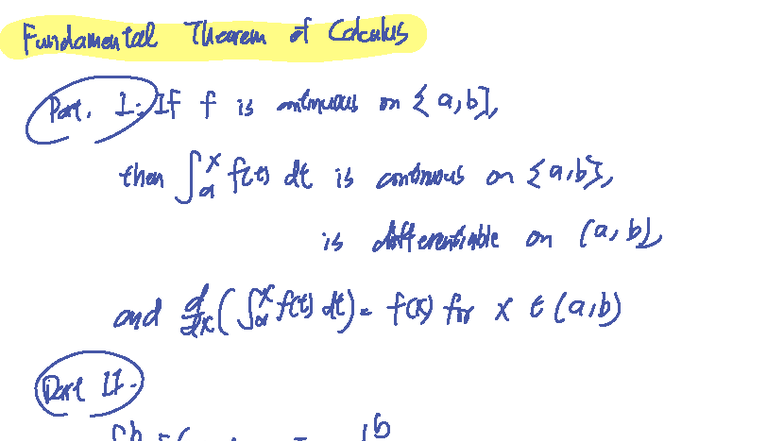 Fundamental Theorem of Calculus
Part. I: If f is continuous on [a,b],
then ∫ₐˣ f(t) dt is continuous on [a,b],
is differentiable on (a,b),
and d/dx(∫ₐˣ f(t) dt) = f(x) for x ∈ (a,b)
Part II.